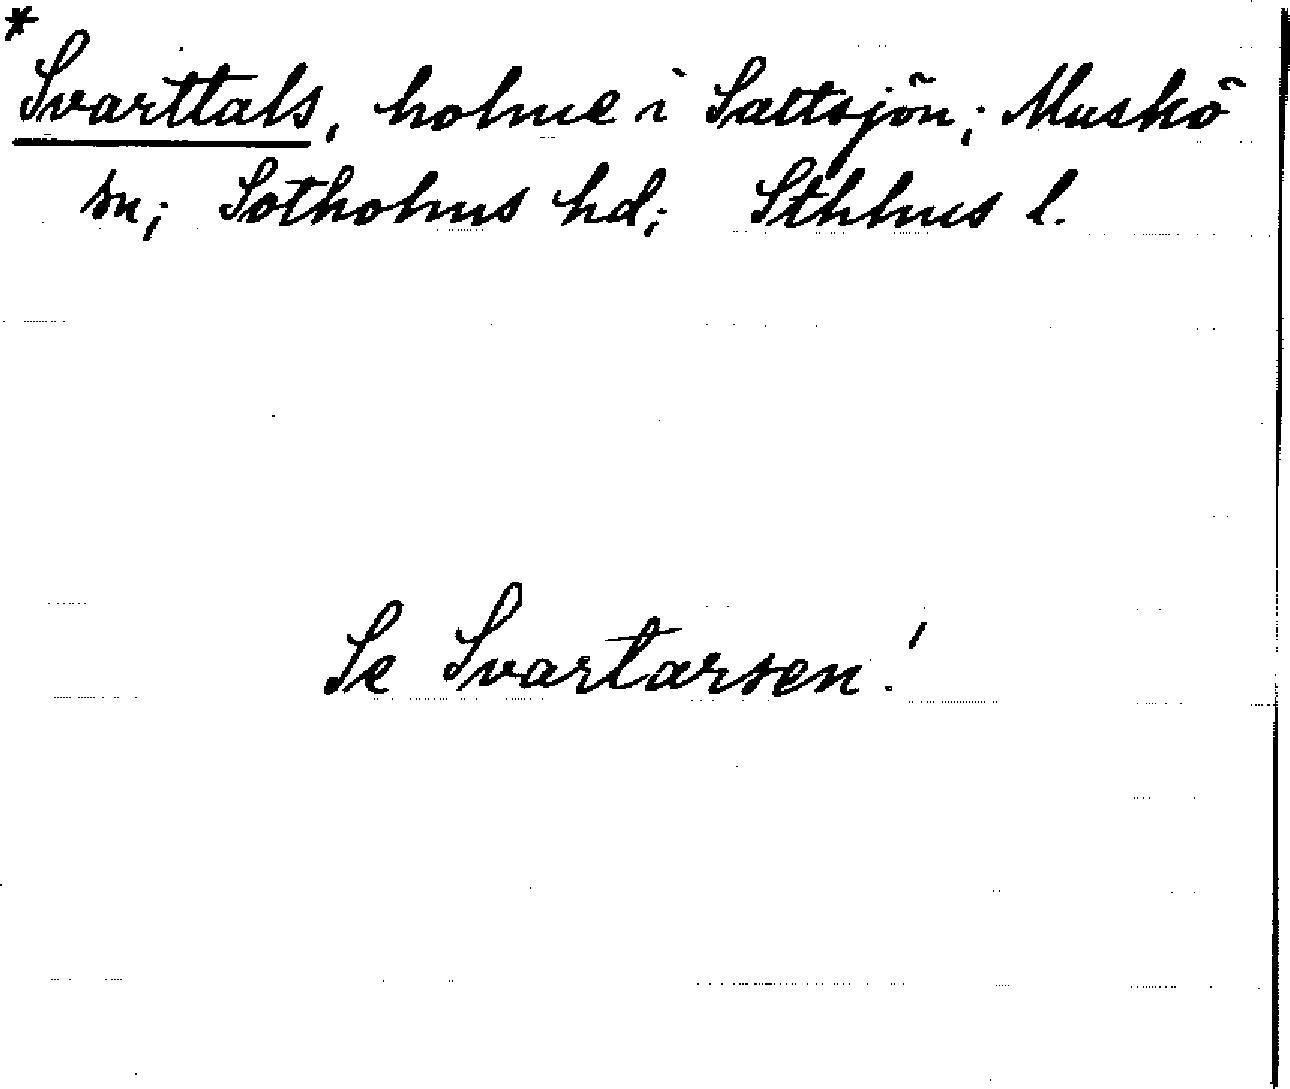 *
Svarttals, holme i Saltsjön; Muskö
sn; Sotholms hd; Sthlms l.
Se Svartarsen!